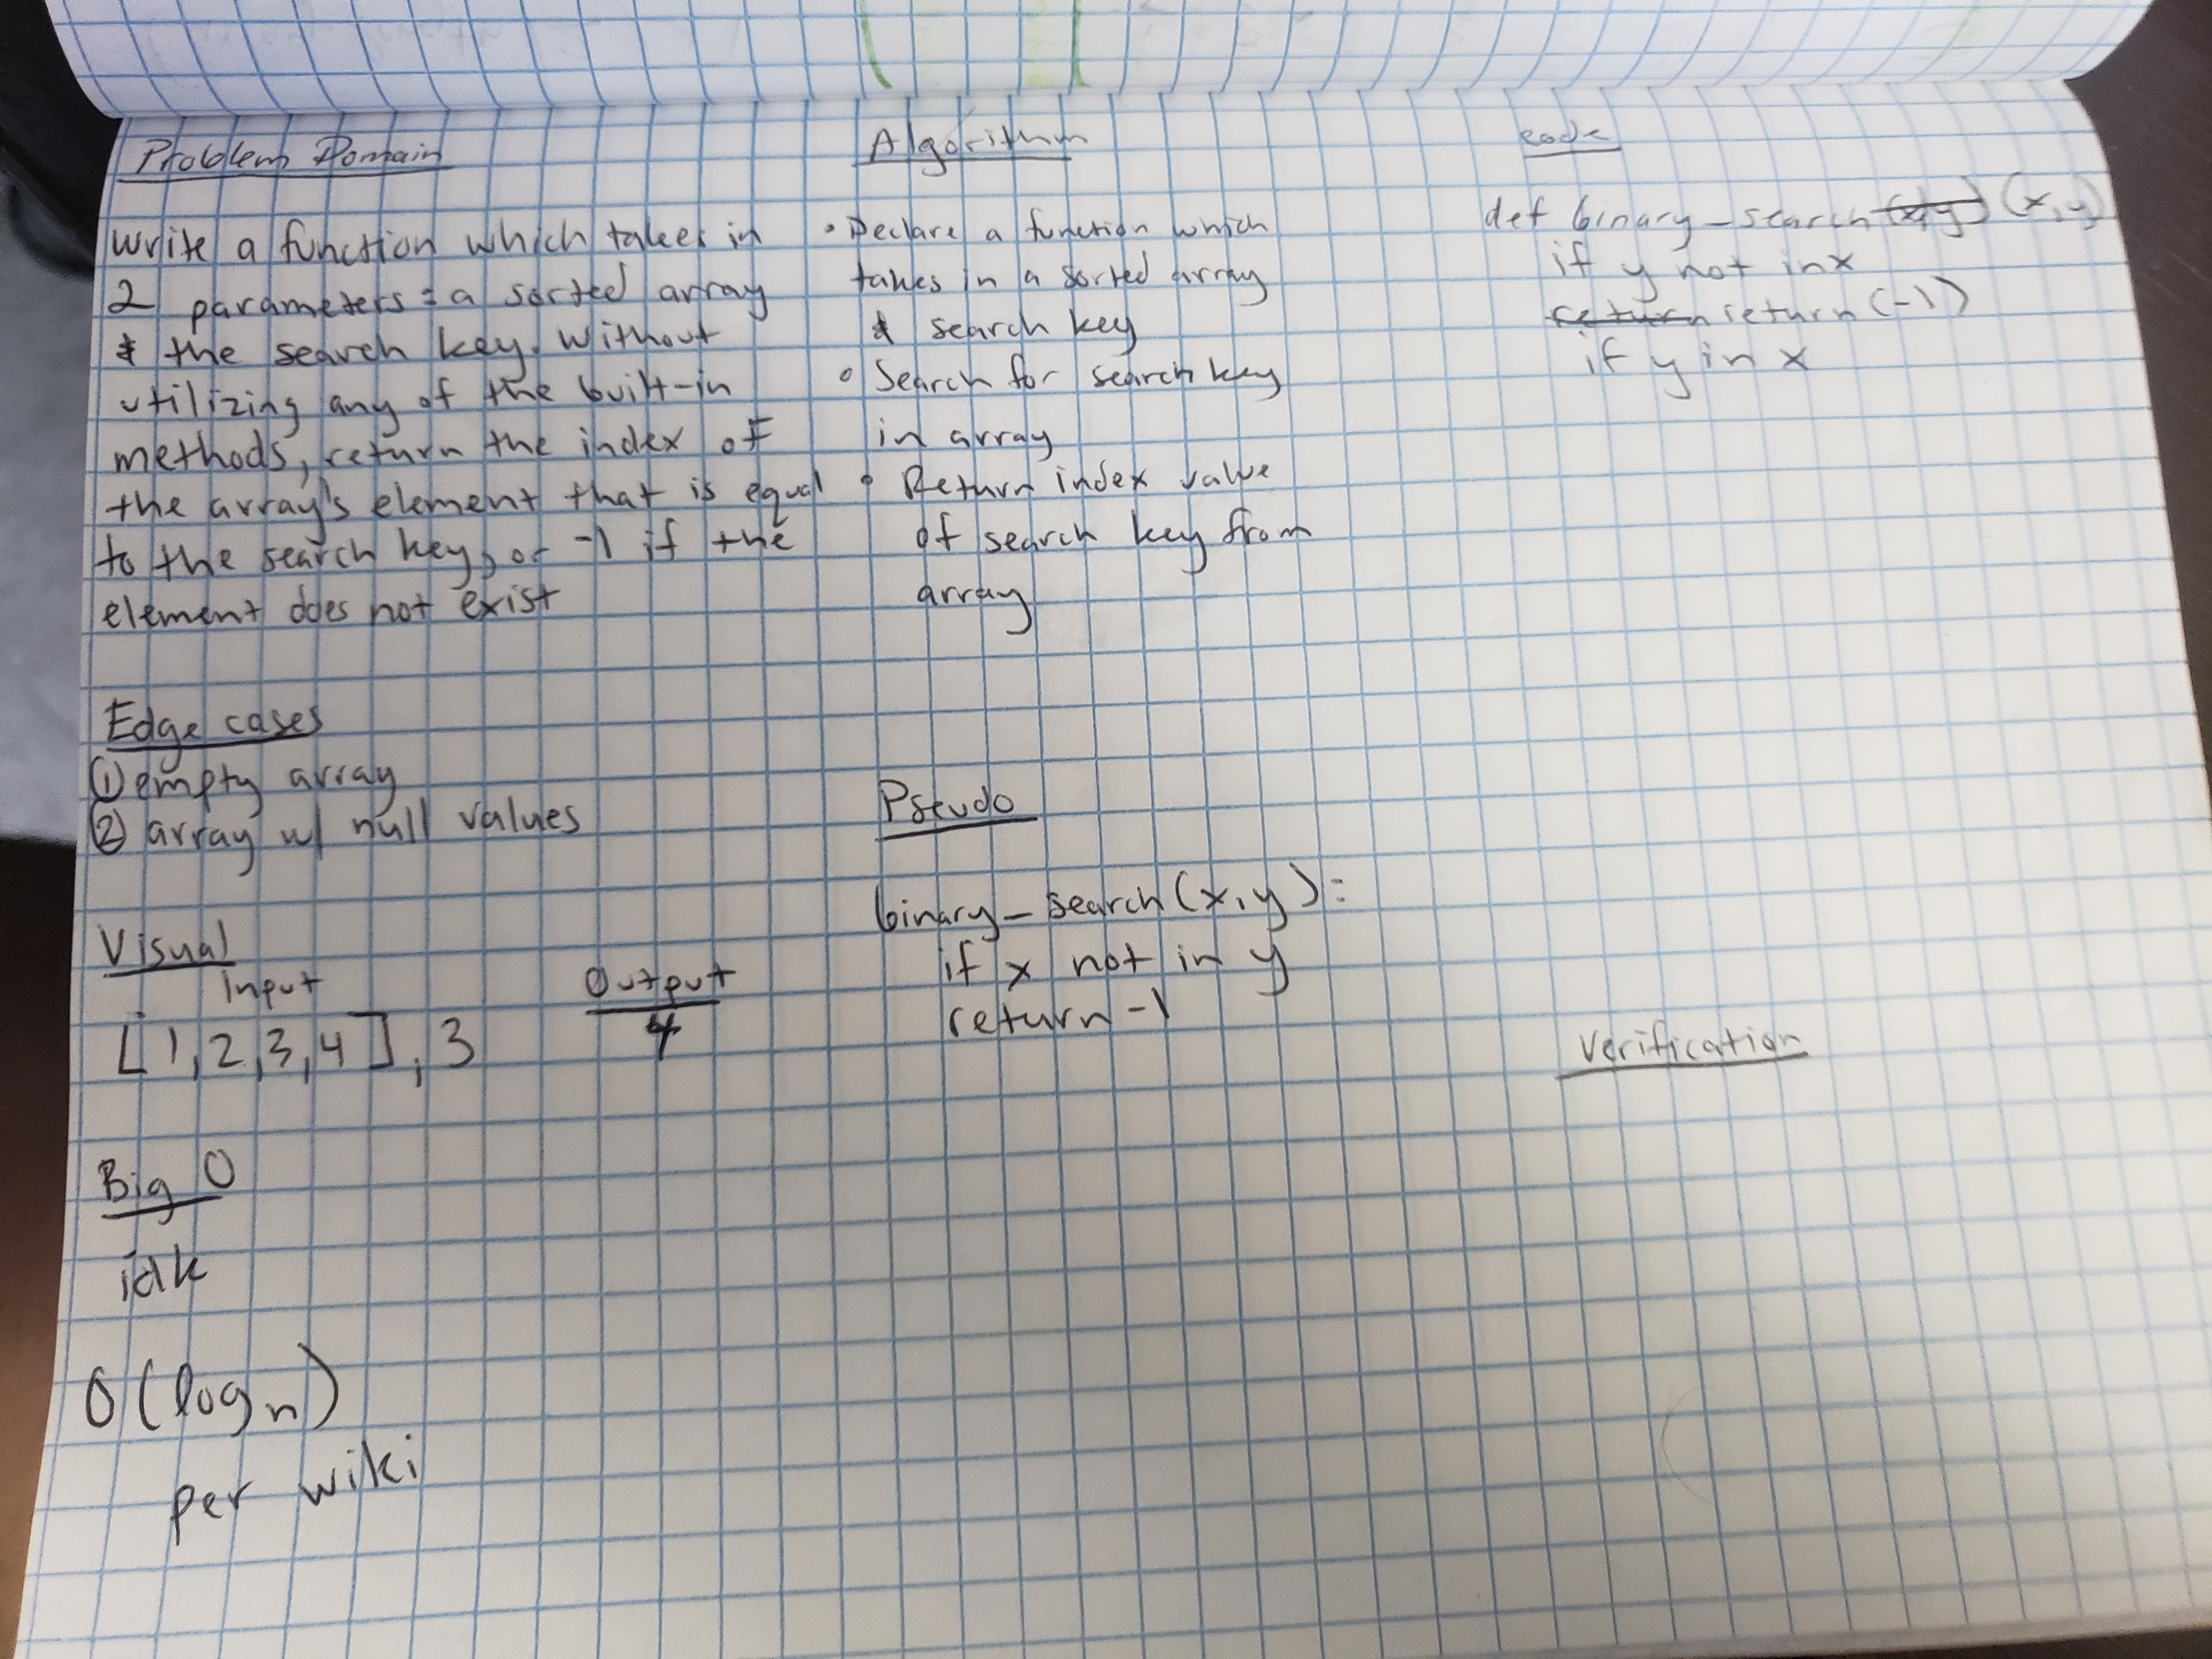 Problem Domain
Write a function which takes in
2 parameters: a sorted array
& the search key. Without
utilizing any of the built-in
methods, return the index of
the array's element that is equal
to the search key, or -1 if the
element does not exist
Edge cases
① empty array
② array w/ null values
Visual
input
[1,2,3,4], 3
Output
Big O
idk
O(log n)
per wiki
Algorithm
• Declare a function which
takes in a sorted array
& search key
• Search for search key
in array
• Return index value
of search key from
array
Pseudo
binary_search(x,y):
if x not in y
return -1
code
def binary_search(x,y) (x,y)
if y not in x
return return (-1)
if y in x
Verification